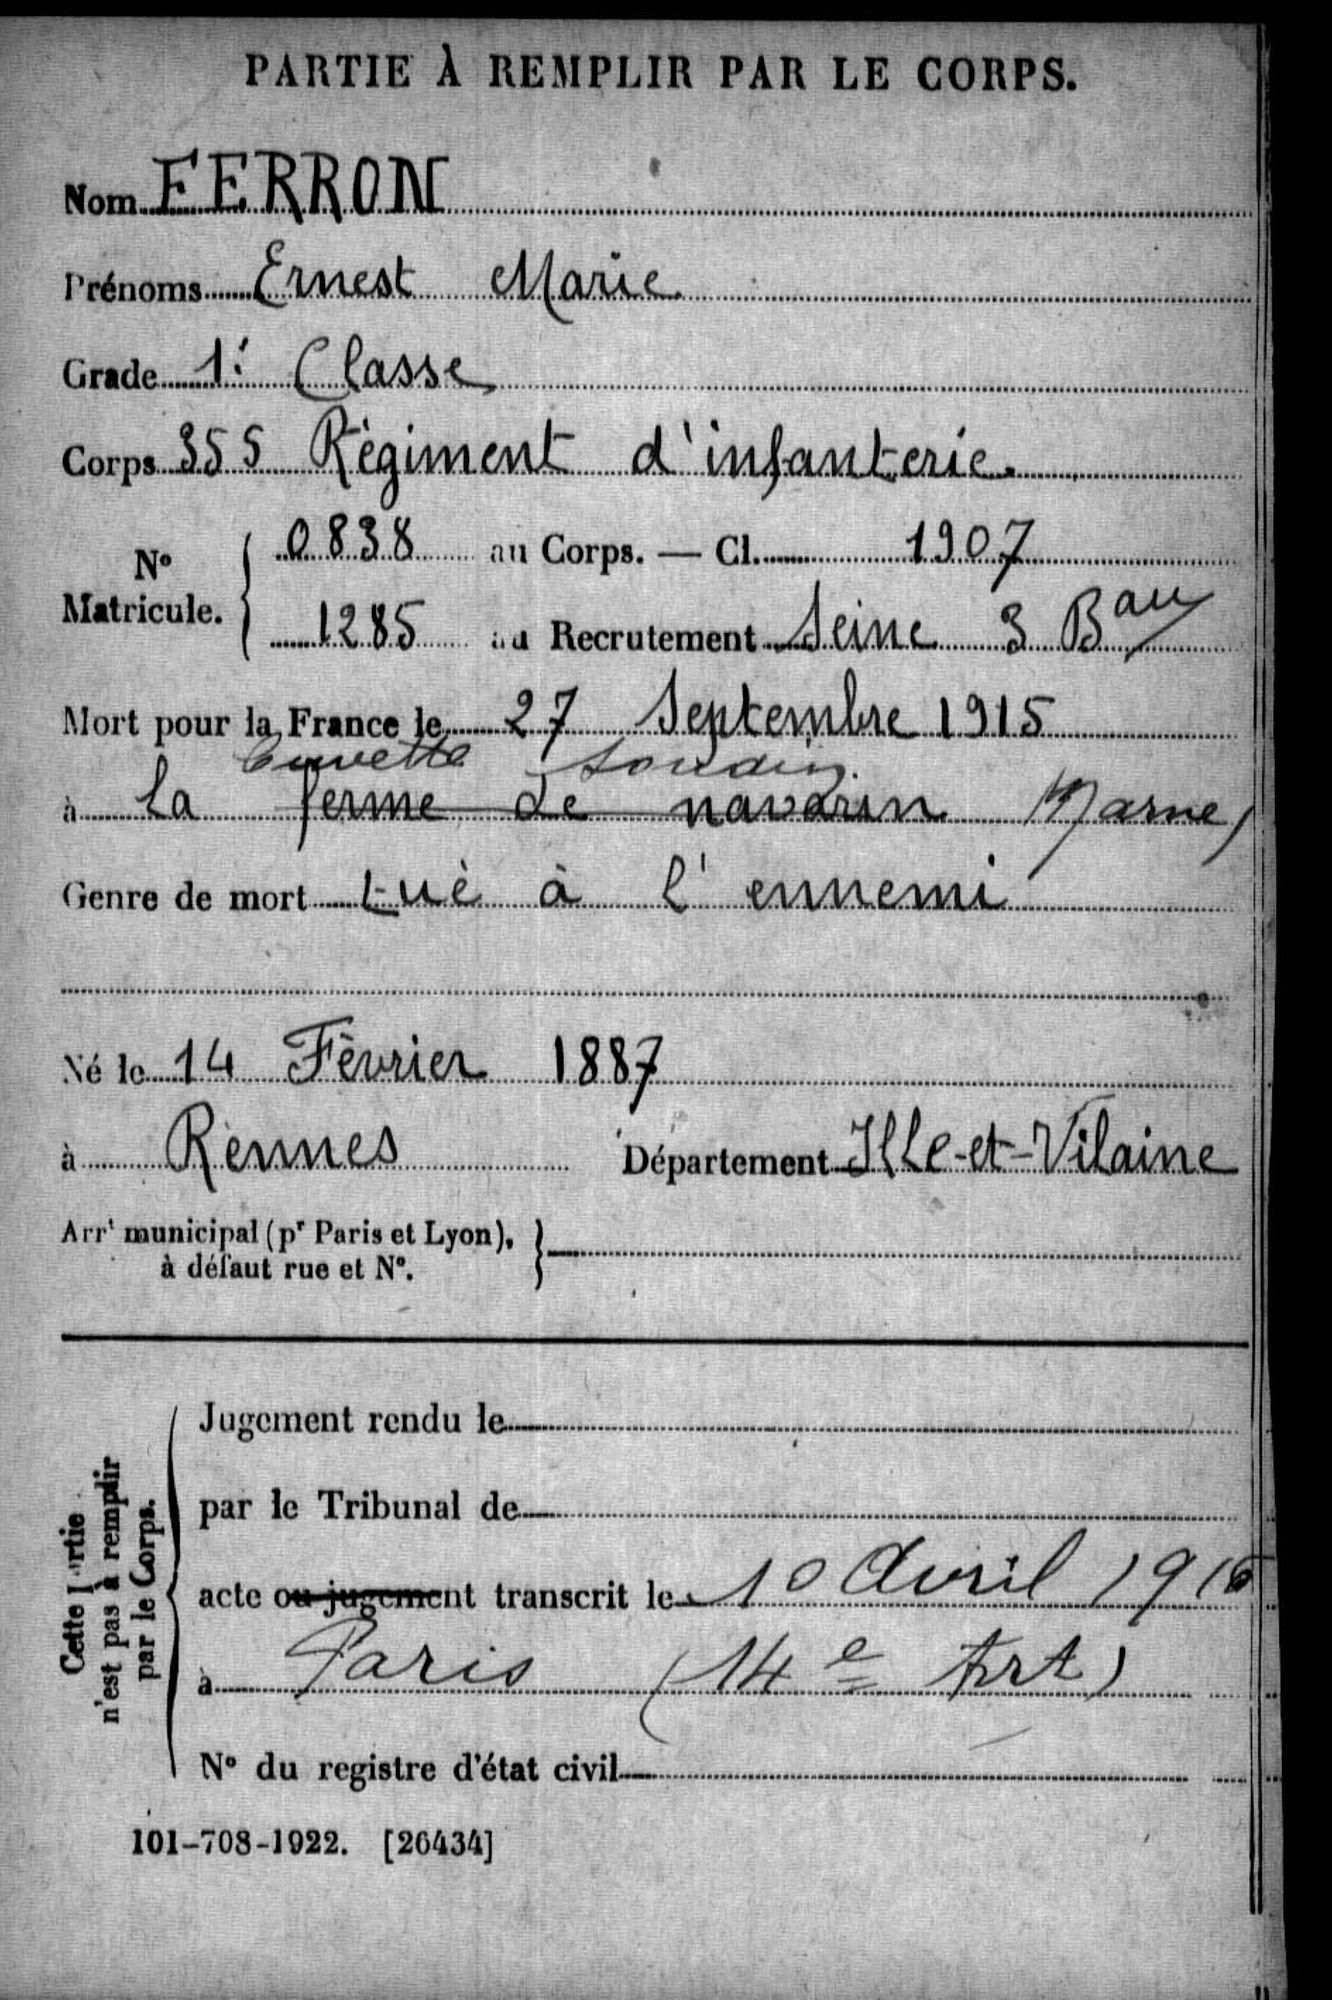 PARTIE À REMPLIR PAR LE CORPS.
Nom FERRON
Prénoms Ernest Marie
Grade 1è Classe
Corps 355 Règiment d'infanterie.
N° Matricule. 0838 au Corps. — Cl. 1907
1285 au Recrutement Seine 3 Bau
Mort pour la France le 27 Septembre 1915
Cuvette Souain
à La ferme de navarin Marne)
Genre de mort tuè à l'ennemi
Né le 14 Fèvrier 1887
à Rennes Département Ille-et-Vilaine
Arrt municipal (pr Paris et Lyon),
à défaut rue et N°.
Cette Partie
n'est pas à remplir
par le Corps.
Jugement rendu le
par le Tribunal de
acte ou jugement transcrit le 10 Avril 1916
à Paris (14e Art)
N° du registre d'état civil
101-708-1922. [26434]